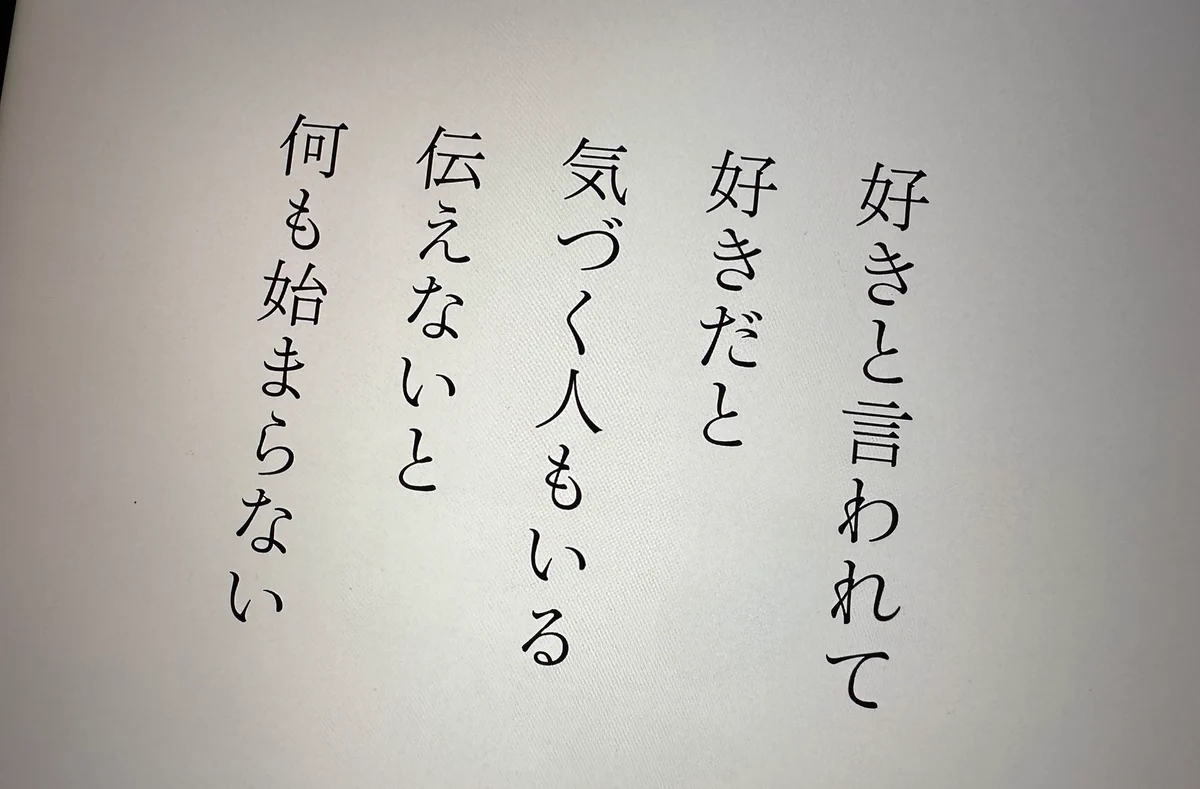 好きと言われて
好きだと
気づく人もいる
伝えないと
何も始まらない